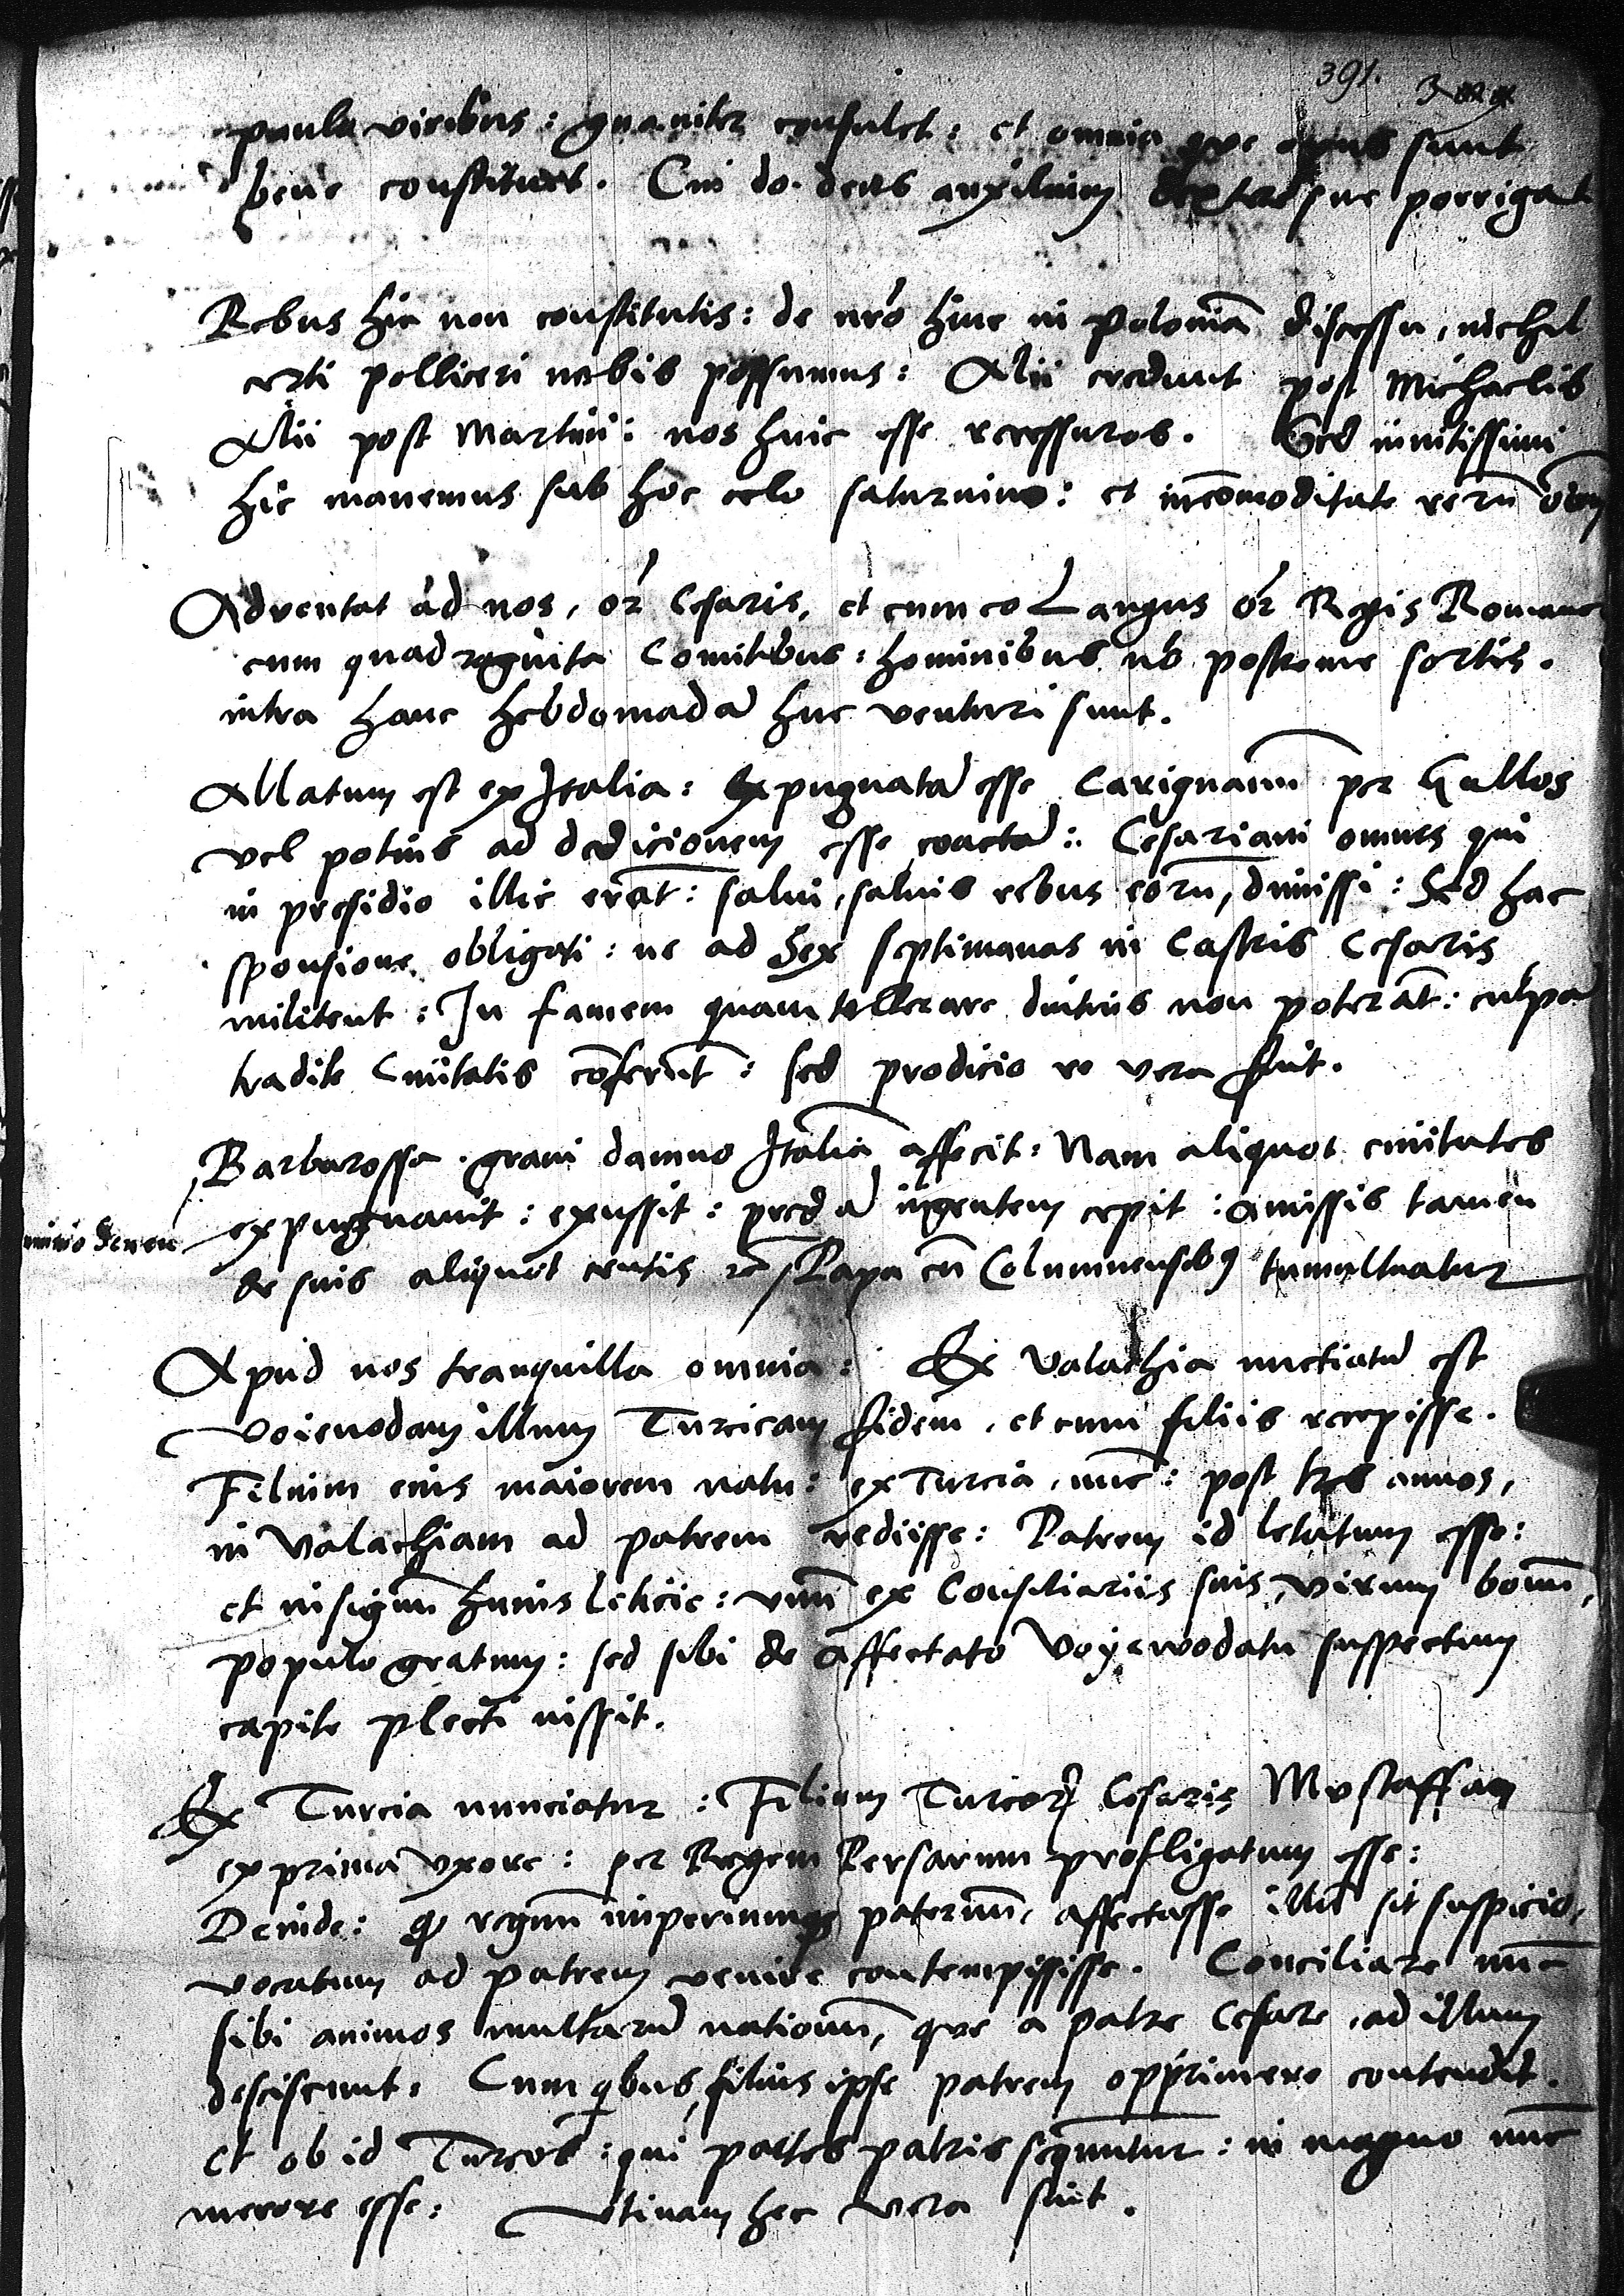 391.
paulu viribus: gnaviter consulet: et omnia que opus sunt
bene constituet. Cui do. deus auxilium dextere sue porrigat
Rebus hic non constitutis: de nro hinc in Polonia discessu, nichil
certi polliceri nobis possumus: Alii credunt post Michaelis
Alii post Martini: nos huic esse recessuros. Sed invitissimi
hic manemus sub hoc celo saturnino: et incomoditate reru oim
Adventat ad nos, or Cesaris, et cum eo Langus or Regis Romano
cum quadraginta Comitibus: hominibus no postreme sortis.
intra hanc hebdomada huc venturi sunt.
Allatum est ex Italia: Expugnata esse Carignanu per Gallos
vel potius ad dedicionem esse coacta: Cesariani omnes qui
in presidio illic erat: salvi, salvis rebus eoru, dimissi: Sed hac
sponsione obligati: ne ad Sex septimanas in Castris Cesaris
militent: In famem quam tollerare diutius non poterat: culpa
tradite Civitatis coferut: sed prodicio re vera fuit.
Barbarossa gravi damno Italia affecit: Nam aliquot civitates
expugnavit: exussit: preda ingentem cepit: amissis tamen
de suis aliquot centis Papa cu Columnensibus tumultuatur
Apud nos tranquilla omnia: Ex Valachia nuctiatu est
Voievodam illum Turcicam fidem, et cum filiis recepisse.
Filium eius maiorem natu: ex Turcia, nuc: post tres annos,
in Valachiam ad patrem rediisse: Patrem id letatum esse:
et in signu huius leticie: vnu ex Consiliariis suis, virum bonu,
populo gratum: sed sibi de affectato Voyewodatu suspectum
capite plecti iussit.
Ex Turcia nunciatur: Filium Turcor Cesaris Mustaffam
ex prima vxore: per Regem Persarum profligatum esse:
Deinde: q regnu imperiumq paternu, affectasse illu sit suspicio,
vocatum ad patrem venire contempsisse. Conciliare nuc
sibi animos multaru nationu, que a patre Cesare, ad illum
desciscunt. Cum qbus filius ipse patrem opprimere contendit.
et ob id Turcos: qui partes patris sequntur: in magno nuc
merore esse: Vtinam hec vera sint.